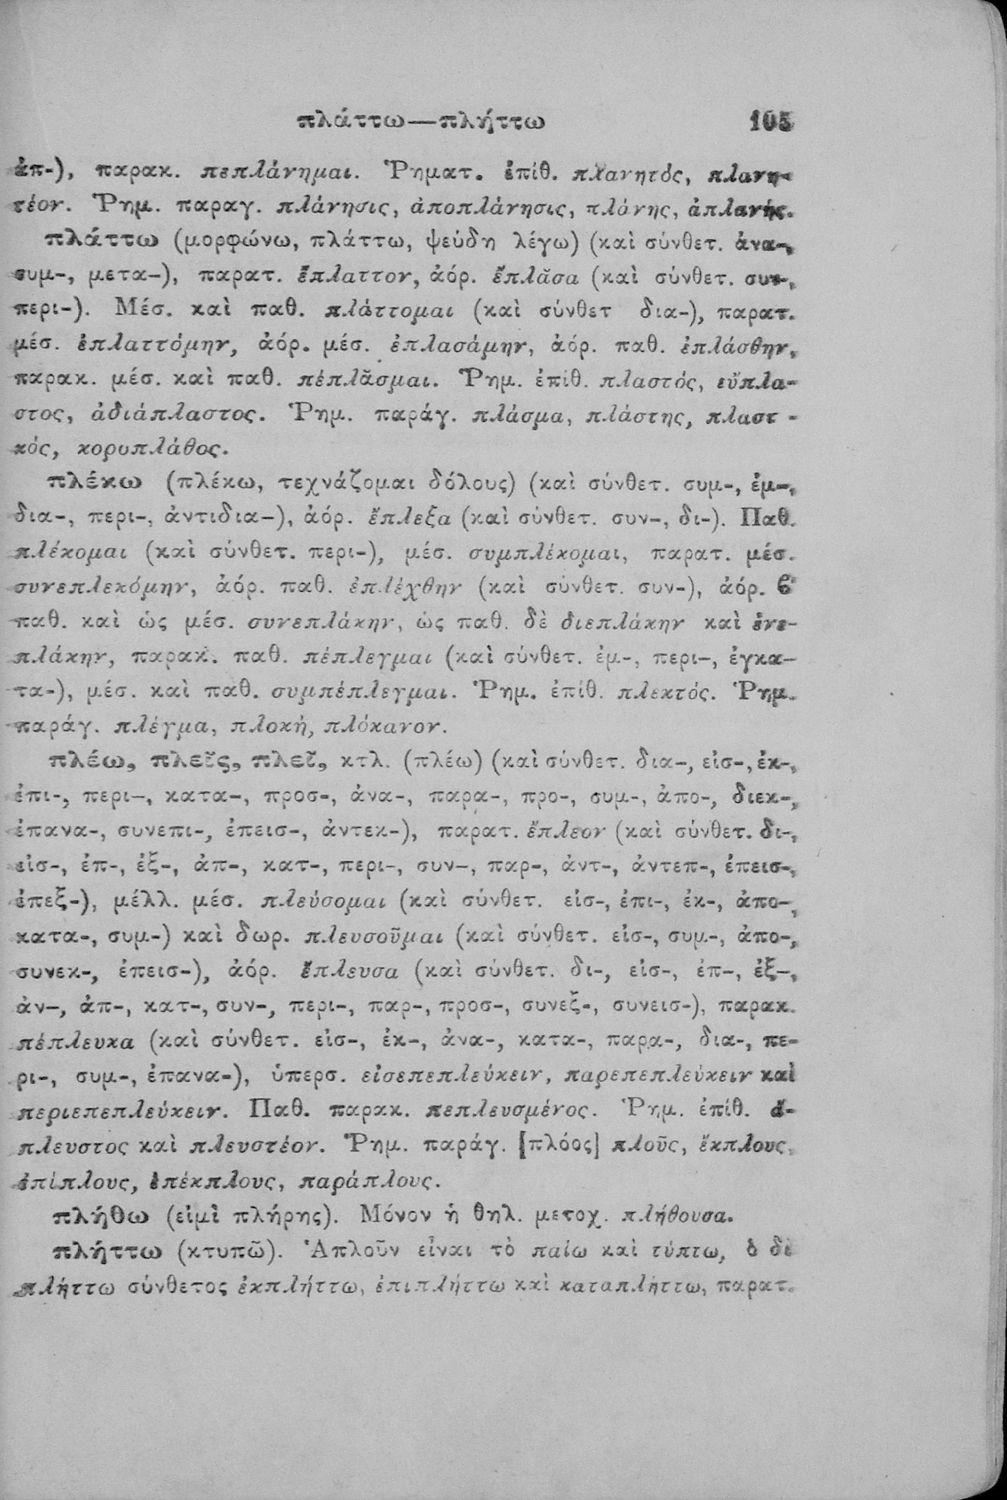 πλάττω—πλήττω 105
ἀπ-), παρακ. πεπλάνημαι. Ῥηματ. ἐπίθ. πλανητός, πλανη-
τέον. Ῥημ. παραγ. πλάνησις, ἀποπλάνησις, πλάνης, ἀπλανής.
πλάττω (μορφώνω, πλάττω, ψεύδη λέγω) (καὶ σύνθετ. ἀνα-,
συμ-, μετα-), παρατ. ἔπλαττον, ἀόρ. ἔπλᾰσα (καὶ σύνθετ. συν-,
περι-). Μέσ. καὶ παθ. πλάττομαι (καὶ σύνθετ δια-), παρατ.
μέσ. ἐπλαττόμην, ἀόρ. μέσ. ἐπλασάμην, ἀόρ. παθ. ἐπλάσθην,
παρακ. μέσ. καὶ παθ. πέπλᾰσμαι. Ῥημ. ἐπίθ. πλαστός, εὔπλα-
στος, ἀδιάπλαστος. Ῥημ. παράγ. πλάσμα, πλάστης, πλαστι-
κός, κοροπλάθος.
πλέκω (πλέκω, τεχνάζομαι δόλους) (καὶ σύνθετ. συμ-, ἐμ-,
δια-, περι-, ἀντιδια-), ἀόρ. ἔπλεξα (καὶ σύνθετ. συν-, δι-). Παθ.
πλέκομαι (καὶ σύνθετ. περι-), μέσ. συμπλέκομαι, παρατ. μέσ.
συνεπλεκόμην, ἀόρ. παθ. ἐπλέχθην (καὶ σύνθετ. συν-), ἀόρ. ϐ'
παθ. καὶ ὡς μέσ. συνεπλάκην, ὡς παθ. δὲ διεπλάκην καὶ ἐνε-
πλάκην, παρακ. παθ. πέπλεγμαι (καὶ σύνθετ. ἐμ-, περι-, ἐγκα-
τα-), μέσ. καὶ παθ. συμπέπλεγμαι. Ῥημ. ἐπίθ. πλεκτός. Ῥημ.
παράγ. πλέγμα, πλοκή, πλόκανον.
πλέω, πλεῖς, πλεῖ, κτλ. (πλέω) (καὶ σύνθετ. δια-, εἰσ-, ἐκ-,
ἐπι-, περι-, κατα-, προσ-, ἀνα-, παρα-, προ-, συμ-, ἀπο-, διεκ-,
ἐπανα-, συνεπι-, ἐπεισ-, ἀντεκ-), παρατ. ἔπλεον (καὶ σύνθετ. δι-,
εἰσ-, ἐπ-, ἐξ-, ἀπ-, κατ-, περι-, συν-, παρ-, ἀντ-, ἀντεπ-, ἐπεισ-,
ἐπεξ-), μέλλ. μέσ. πλεύσομαι (καὶ σύνθετ. εἰσ-, ἐπι-, ἐκ-, ἀπο-,
κατα-, συμ-) καὶ δωρ. πλευσοῦμαι (καὶ σύνθετ. εἰσ-, συμ-, ἀπο-,
συνεκ-, ἐπεισ-), ἀόρ. ἔπλευσα (καὶ σύνθετ. δι-, εἰσ-, ἐπ-, ἐξ-,
ἀν-, ἀπ-, κατ-, συν-, περι-, παρ-, προσ-, συνεξ-, συνεισ-), παρακ.
πέπλευκα (καὶ σύνθετ. εἰσ-, ἐκ-, ἀνα-, κατα-, παρα-, δια-, πε-
ρι-, συμ-, ἐπανα-), ὑπερσ. εἰσεπεπλεύκειν, παρεπεπλεύκειν καὶ
περιεπεπλεύκειν. Παθ. παρακ. πεπλευσμένος. Ῥημ. ἐπίθ. ἄ-
πλευστος καὶ πλευστέον. Ῥημ. παράγ. [πλόος] πλοῦς, ἔκπλους,
ἐπίπλους, ἐπέκπλους, παράπλους.
πλήθω (εἰμὶ πλήρης). Μόνον ἡ θηλ. μετοχ. πλήθουσα.
πλήττω (κτυπῶ). Ἁπλοῦν εἶναι τὸ παίω καὶ τύπτω, ὁ δὲ
πλήττω σύνθετος ἐκπλήττω, ἐπιπλήττω καὶ καταπλήττω, παρατ.